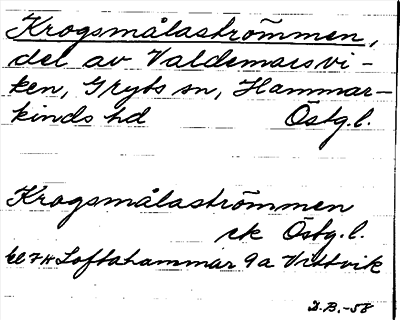 Krogsmålaströmmen,
del av Valdemarsvi-
ken, Gryts sn, Hammar-
kinds hd Östg.l.
Krogsmålaströmmen
ek Östg.l.
bl 7H Loftahammar 9a Vittvik
D.B.-58